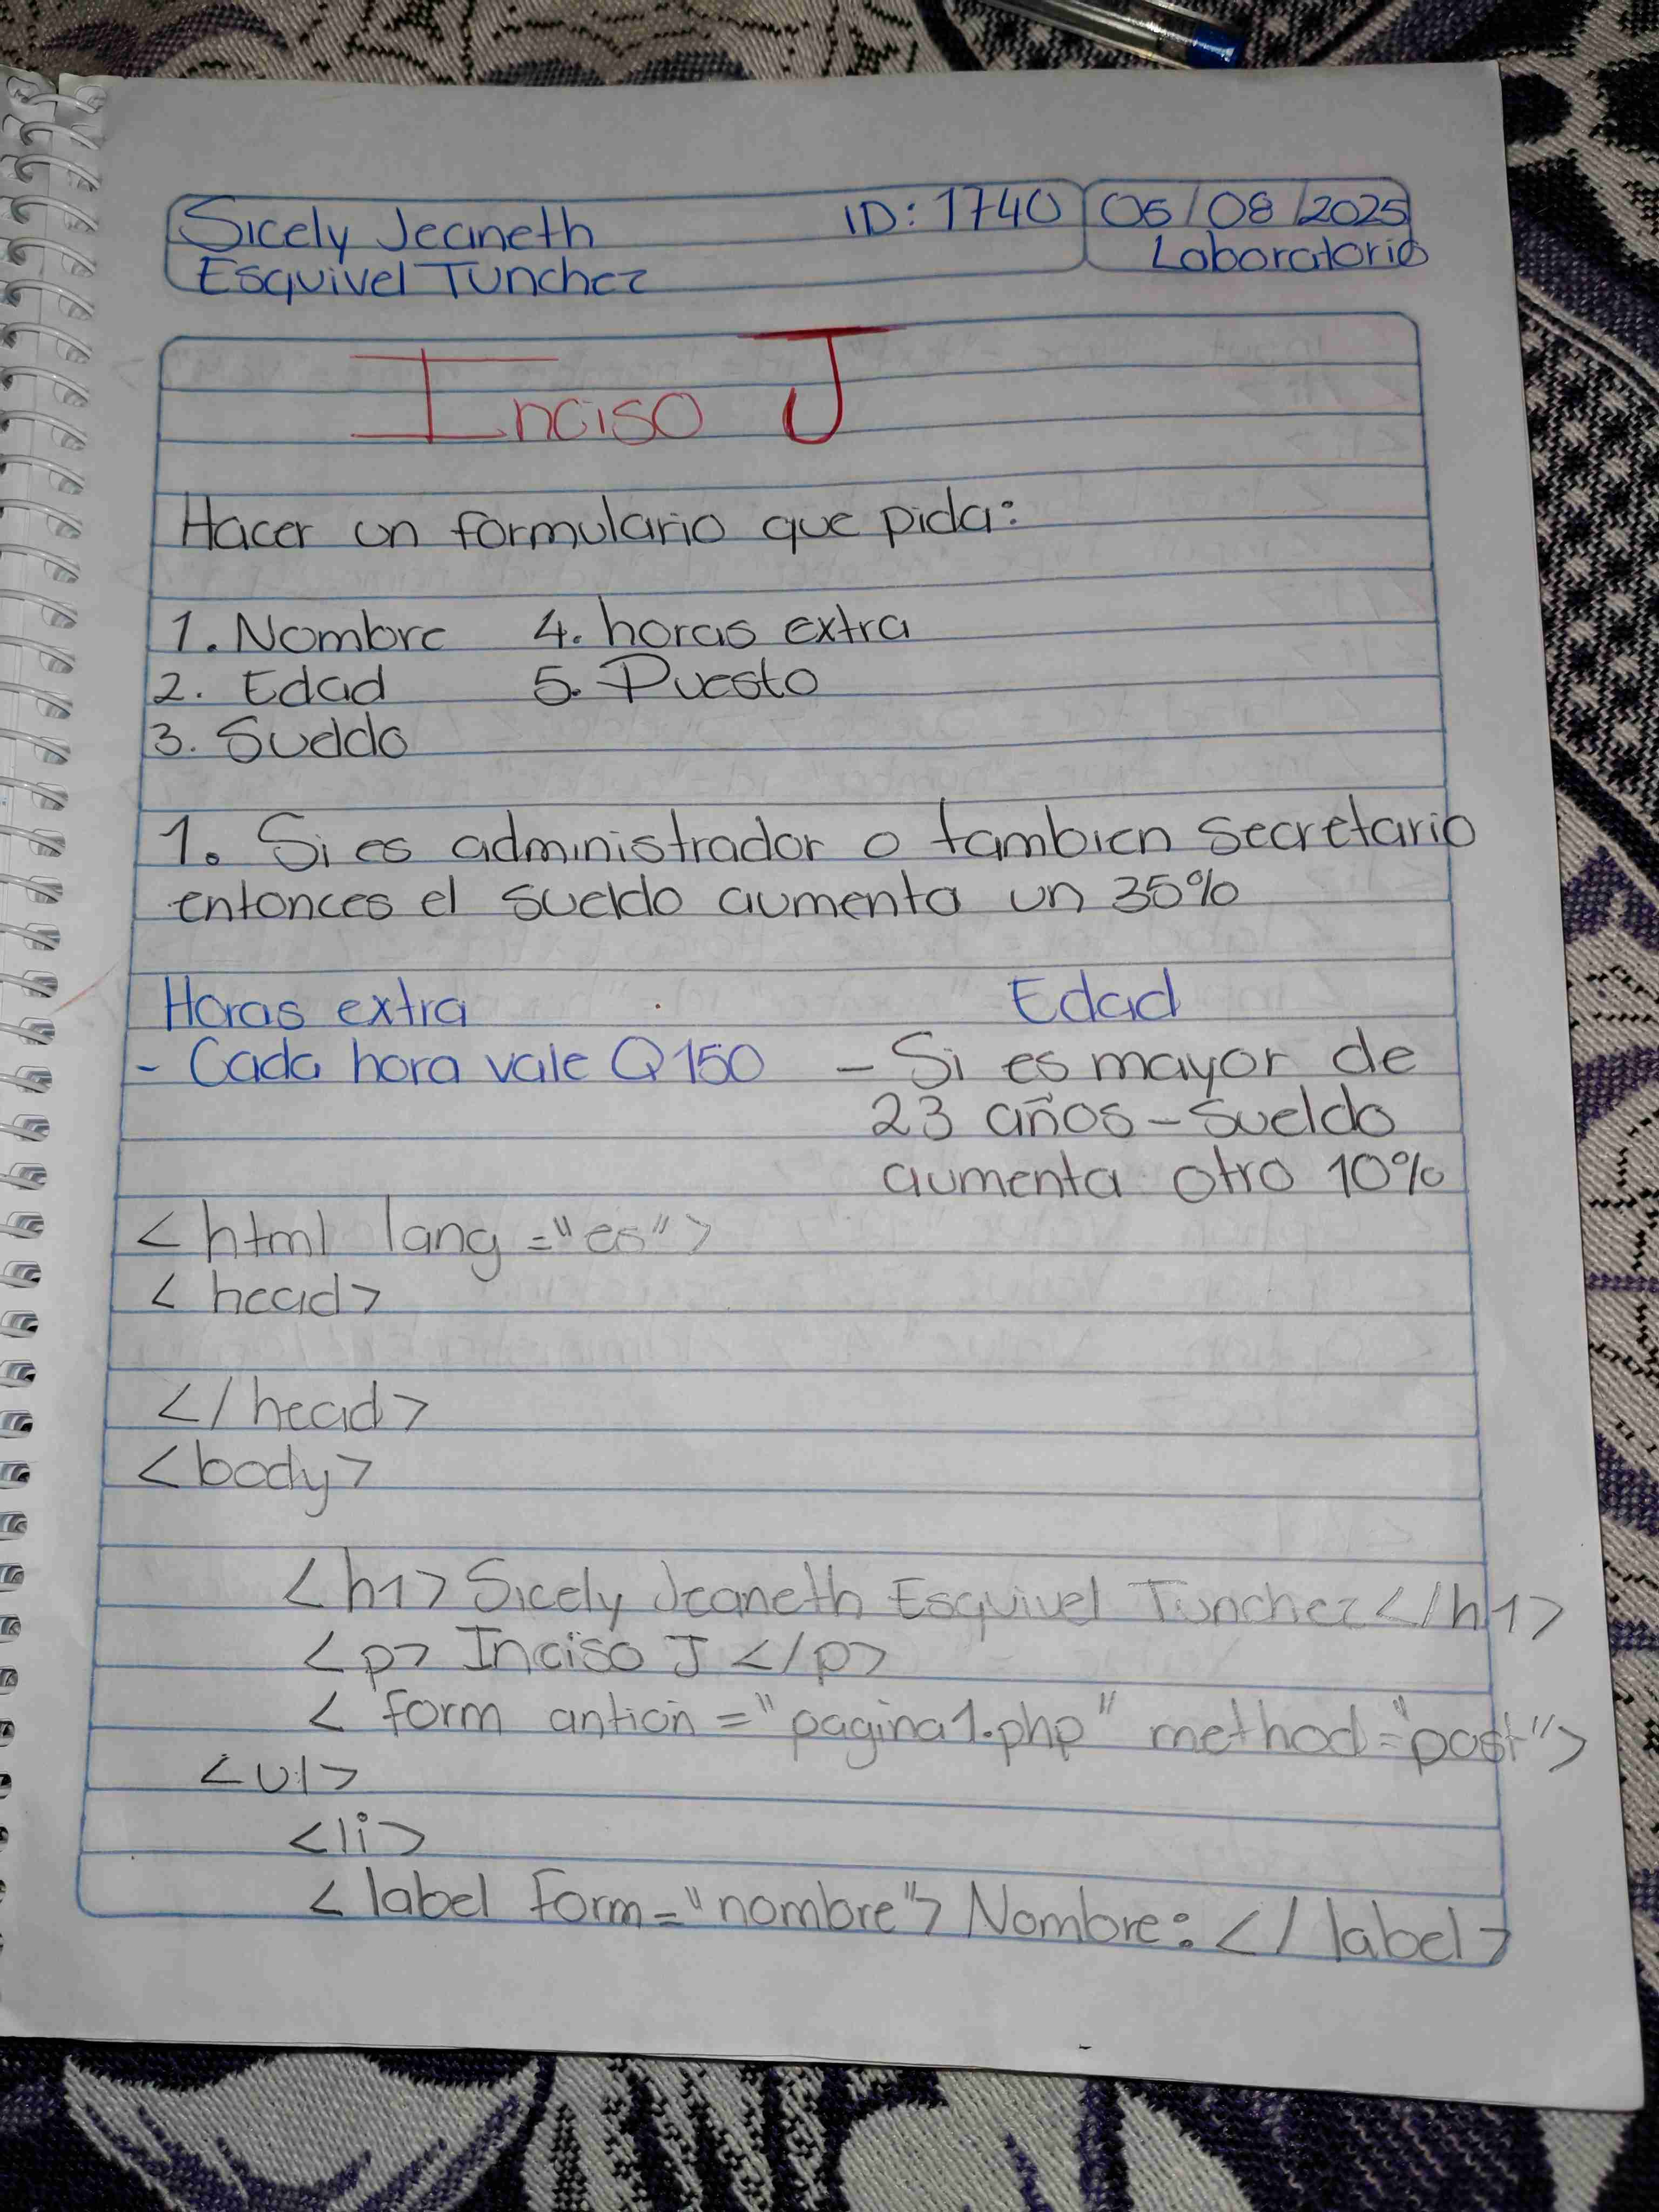 Sicely Jeaneth ID: 1740 05/08/2025
Esquivel Tunchez Laboratorio
Inciso J
Hacer un formulario que pida:
1. Nombre 4. horas extra
2. Edad 5. Puesto
3. Sueldo
1. Si es administrador o tambien secretario
entonces el sueldo aumenta un 35%
Horas extra Edad
- Cada hora vale Q150 - Si es mayor de
23 años - Sueldo
aumenta otro 10%
<html lang="es">
<head>
</head>
<body>
<h1> Sicely Jeaneth Esquivel Tunchez</h1>
<p> Inciso J </p>
<form antion="pagina1.php" method="post">
<ul>
<li>
<label form="nombre"> Nombre: </label>